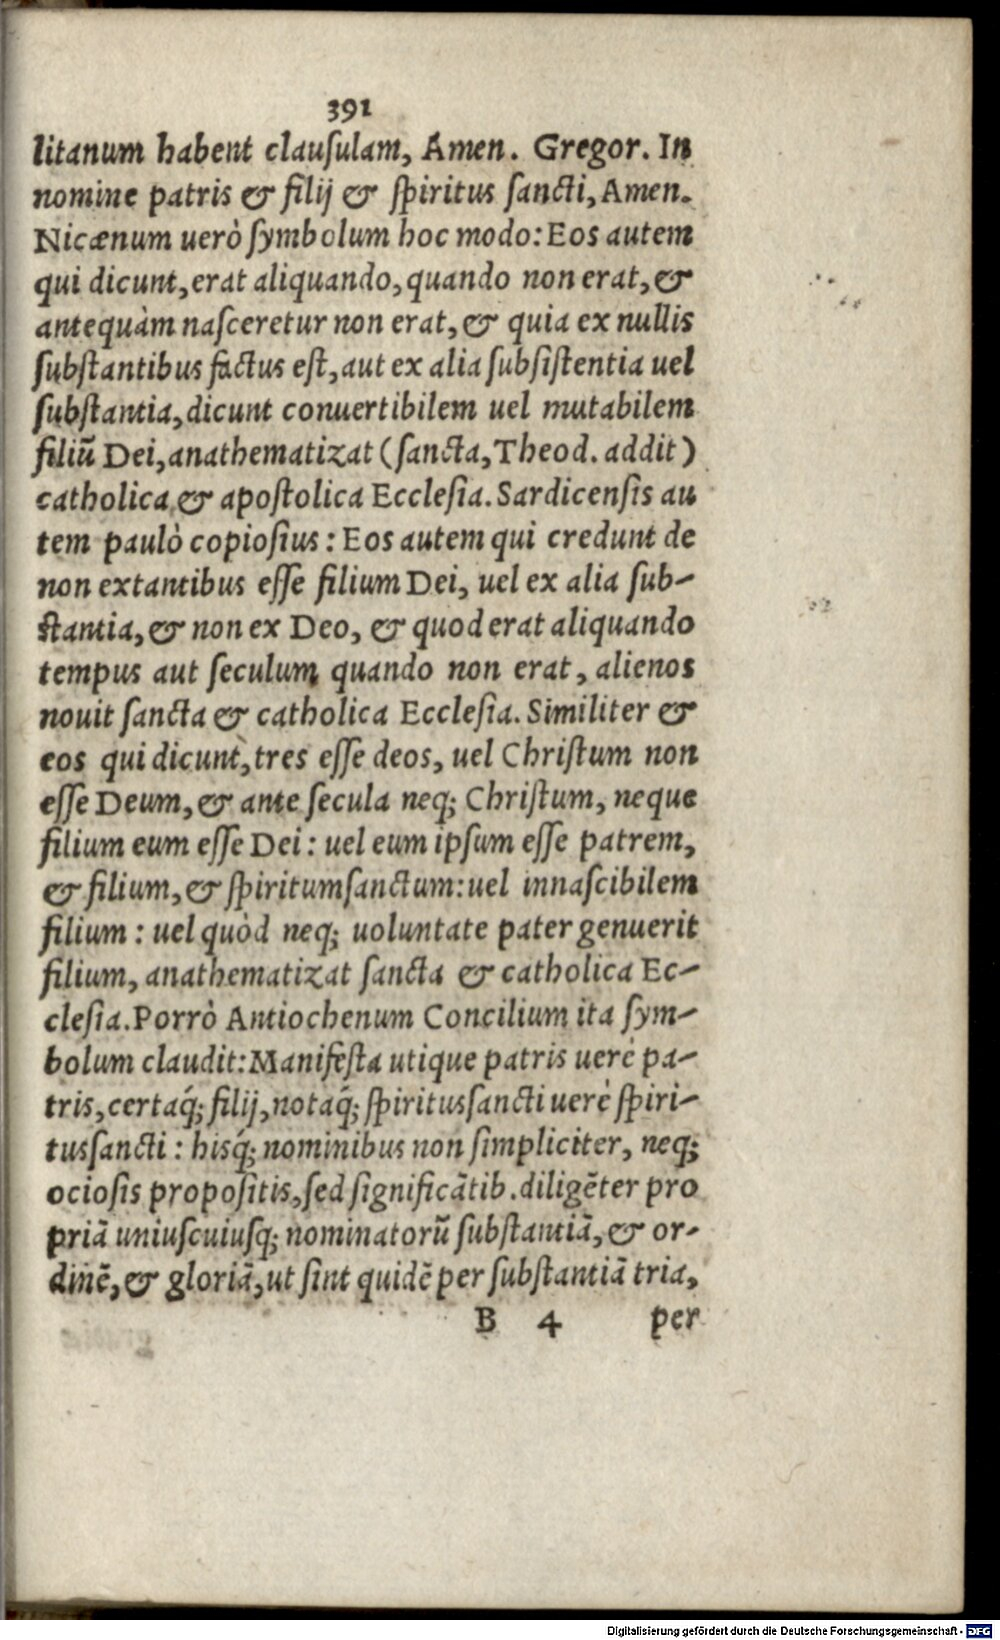 391
litanum habent clauſulam, Amen. Gregor. In
nomine patris & filij & ſpiritus ſancti, Amen.
Nicænum uerò ſymbolum hoc modo: Eos autem
qui dicunt, erat aliquando, quando non erat, &
antequàm naſceretur non erat, & quia ex nullis
ſubſtantibus factus eſt, aut ex alia ſubſiſtentia uel
ſubſtantia, dicunt conuertibilem uel mutabilem
filiū Dei, anathematizat (ſancta, Theod. addit)
catholica & apoſtolica Eccleſia. Sardicenſis au
tem paulò copioſius: Eos autem qui credunt de
non extantibus eſſe filium Dei, uel ex alia ſub-
ſtantia, & non ex Deo, & quod erat aliquando
tempus aut ſeculum quando non erat, alienos
nouit ſancta & catholica Eccleſia. Similiter &
eos qui dicunt, tres eſſe deos, uel Chriſtum non
eſſe Deum, & ante ſecula neq; Chriſtum, neque
filium eum eſſe Dei: uel eum ipſum eſſe patrem,
& filium, & ſpiritumſanctum: uel innaſcibilem
filium: uel quòd neq; uoluntate pater genuerit
filium, anathematizat ſancta & catholica Ec-
cleſia. Porrò Antiochenum Concilium ita ſym-
bolum claudit: Manifeſta utique patris uerè pa-
tris, certaq́; filij, notaq́; ſpiritusſancti uerè ſpiri-
tusſancti: hisq́; nominibus non ſimpliciter, neq;
ocioſis propoſitis, ſed ſignificātib. diligēter pro
priā uniuſcuiuſq; nominatorū ſubſtantiā, & or-
dinē, & gloriā, ut ſint quidē per ſubſtantiā tria,
B 4 per
Digitalisierung gefördert durch die Deutsche Forschungsgemeinschaft - DFG